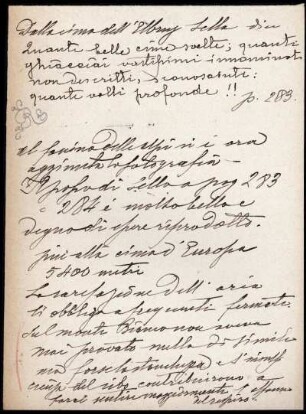 Dalla cima dell'Elbruz Sella dice
Quante belle cime svelte; quanti
ghiacciai vastissimi innominati
non descritti, sconosciuti:
quante valli profonde!!
p. 283.
Al fascino delle alpi vi è ora
aggiunta la fotografia —
di Sella a pag 283
e 284 è molto bello e
degno di essere riprodotto.
più alta cima d'Europa
5400 metri
La rarefazione dell'aria
ti obbliga a frequenti fermate
Sul monte Bianco non aveva
mai provato nulla di simile
ma forse la stanchezza e
del cibo contribuirono a
farci sentire maggiormente l'affanno
del respiro